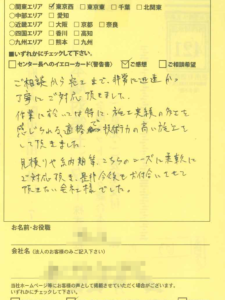 □関東エリア ☑東京西 □東東京 □千葉 □北関東
□中部エリア □愛知
□近畿エリア □大阪 □京都 □奈良
□四国エリア □香川 □高知
□九州エリア □熊本 □九州
■いずれかにチェックして下さい。
□センター長へのイエローカード(警告書) ☑ご感想 □ご相談希望
ご相談から完了まで、非常に迅速かつ
丁寧にご対応頂きました。
作業に於いては特に、施工実績の高さを
感じられる適格で技術力の高い施工を
して頂きました。
見積りや工期等、こちらのニーズに柔軟に
ご対応頂き、是非今後もお付合いさせて
頂きたい会社様でした。
お名前・お役職
会社名 (法人のお客様のみご記入下さい)
当社ホームページ等にお客様の声として掲載させていただく場合がございます。
いずれかにチェックして下さい。